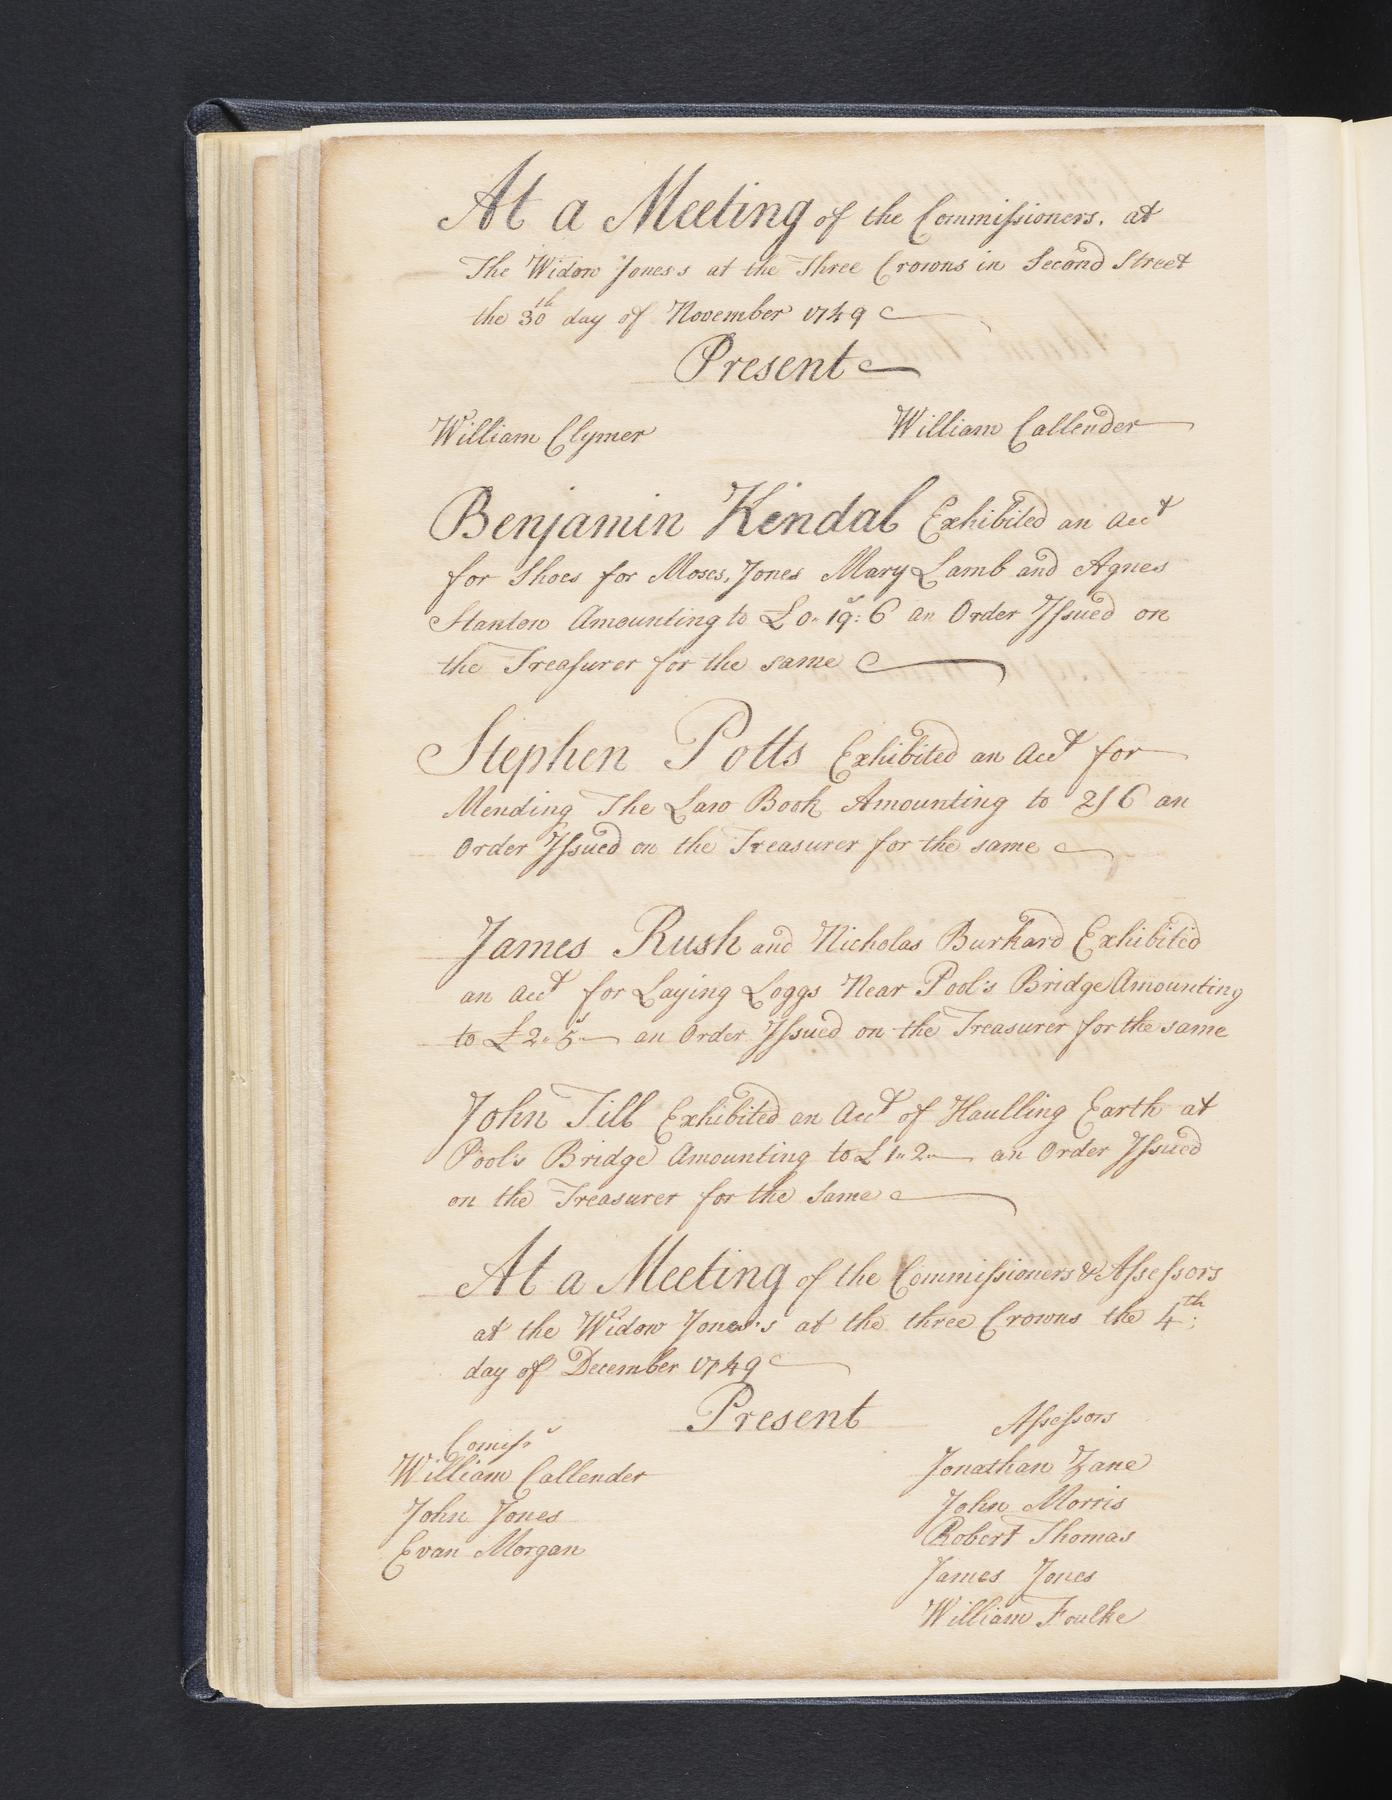 At a Meeting of the Commissioners, at
The Widow Jones's at the Three Crowns in Second Street
the 30th day of November 1749
Present
William Clymer William Callender
Benjamin Kendal Exhibited an Acct
for Shoes for Moses, Jones Mary Lamb and Agnes
Stanton Amounting to £0.. 19s: 6 an Order Issued on
the Treasurer for the same
Stephen Potts Exhibited an Acct for
Mending The Law Book Amounting to 2/6 an
Order Issued on the Treasurer for the same
James Rush and Nicholas Burkard Exhibited
an Acct for Laying Loggs Near Pool's Bridge Amounting
to £2.. 5s.. an Order Issued on the Treasurer for the same
John Till Exhibited an Acct of Haulling Earth at
Pool's Bridge Amounting to £1.. 2.. an Order Issued
on the Treasurer for the Same
At a Meeting of the Commissioners & Assessors
at the Widow Jones's at the three Crowns the 4th:
day of December 1749
Present
Comissrs Assessors
William Callender Jonathan Zane
John Jones John Morris
Evan Morgan Robert Thomas
James Jones
William Foulke